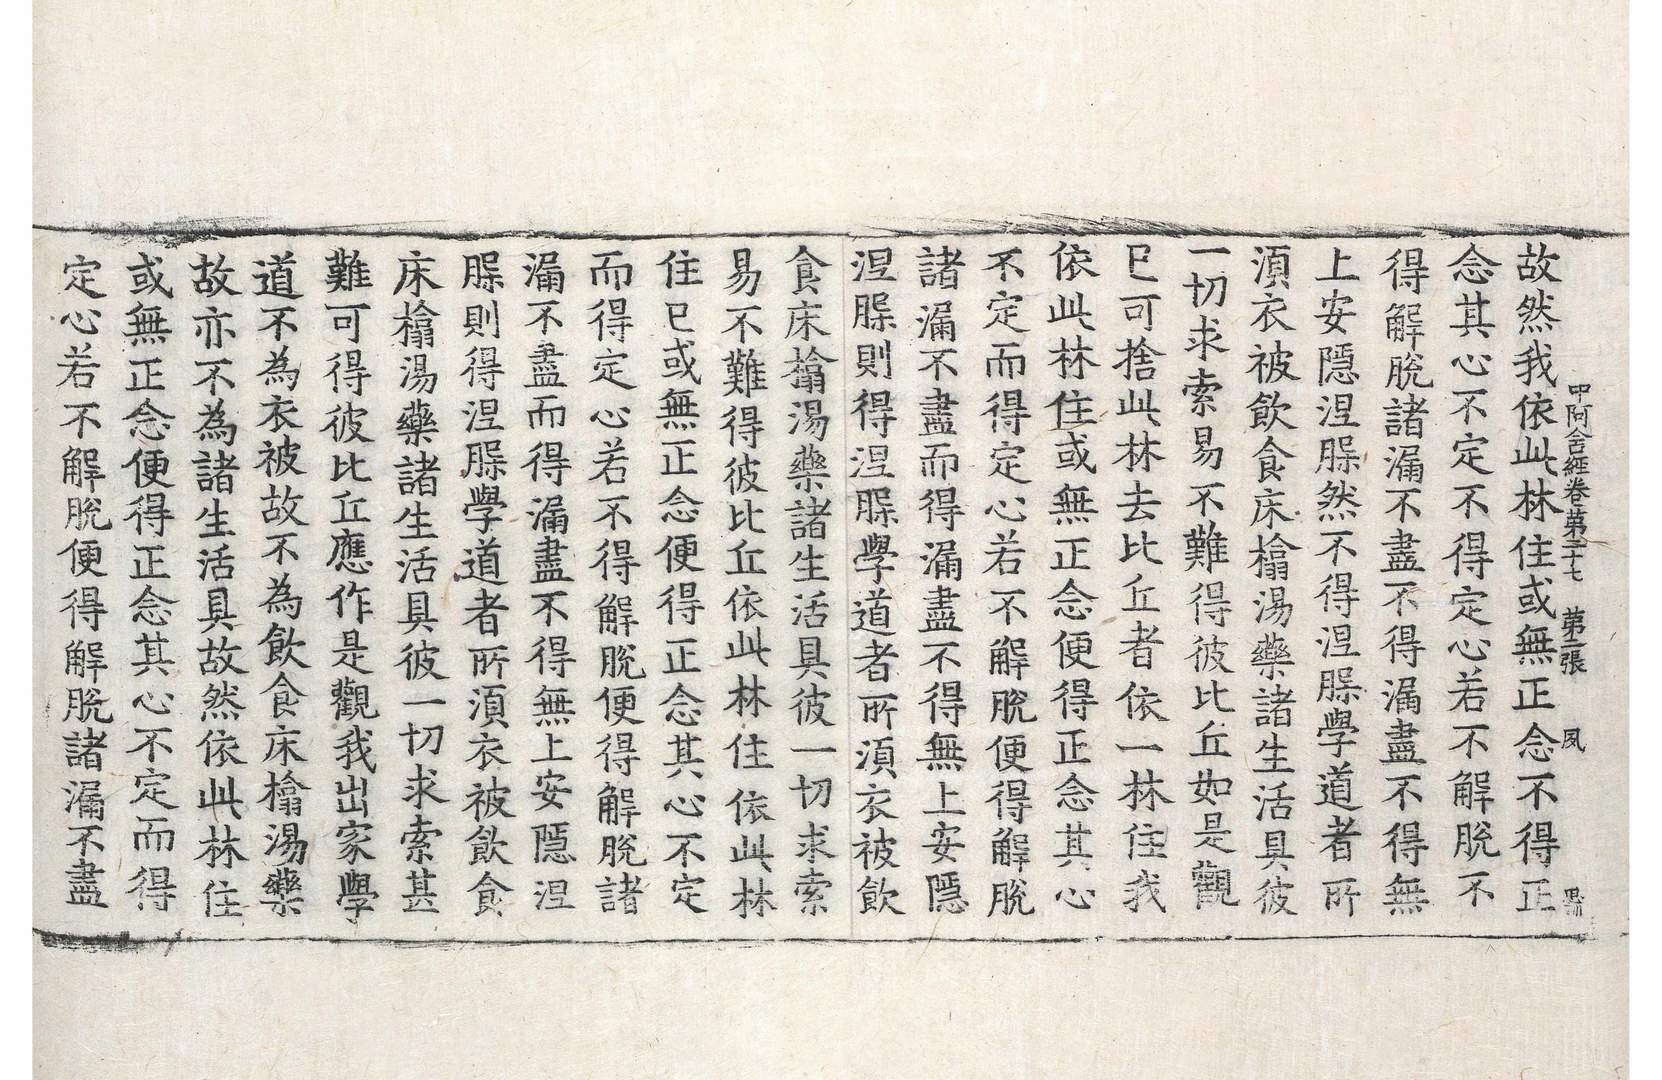 中阿含經卷第二十七 第二張 夙
故然我依此林住或無正念不得正
念其心不定不得定心若不解脫不
得解脫諸漏不盡不得漏盡不得無
上安隱涅槃然不得涅槃學道者所
須衣被飲食床榻湯藥諸生活具彼
一切求索易不難得彼比丘如是觀
已可捨此林去比丘者依一林住我
依此林住或無正念便得正念其心
不定而得定心若不解脫便得解脫
諸漏不盡而得漏盡不得無上安隱
涅槃則得涅槃學道者所須衣被飲
食床榻湯藥諸生活具彼一切求索
易不難得彼比丘依此林住依此林
住已或無正念便得正念其心不定
而得定心若不得解脫便得解脫諸
漏不盡而得漏盡不得無上安隱涅
槃則得涅槃學道者所須衣被飲食
床榻湯藥諸生活具彼一切求索甚
難可得彼比丘應作是觀我出家學
道不為衣被故不為飲食床榻湯藥
故亦不為諸生活具故然依此林住
或無正念便得正念其心不定而得
定心若不解脫便得解脫諸漏不盡